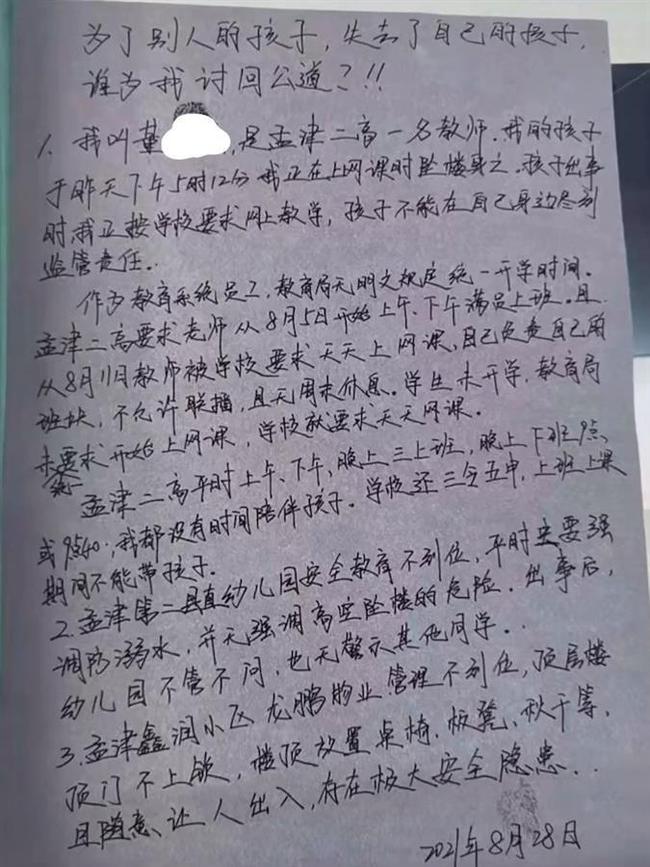 为了别人的孩子，失去了自己的孩子，
谁为我讨回公道？!!
1、我叫董 ，是孟津二高一名教师。我的孩子
于昨天下午5时12分我正在上网课时坠楼身亡。孩子出事
时，我正按学校要求网上教学，孩子不能在自己身边尽到
监管责任。
作为教育系统员工，教育局无明文规定统一开学时间。
孟津二高要求老师从8月5日开始上午、下午满员上班。且
从8月11日教师被学校要求天天上网课，自己负责自己的
班块，不允许联播，且无周末休息。学生未开学，教育局
未要求开始上网课，学校就要求天天网课。
孟津二高平时上午、下午、晚上三上班，晚上下班9点
或9点40，我都没有时间陪伴孩子。学校还三令五申，上班上课
期间不能带孩子。
2、孟津第二县直幼儿园安全教育不到位，平时主要强
调防溺水，并无强调高空坠楼的危险。出事后，
幼儿园不管不问，也无警示其他同学。.
3、孟津鑫润小区龙鹏物业管理不到位，顶层楼
顶门不上锁，楼顶放置桌椅、板凳、秋千等，
且随意让人出入，存在极大安全隐患...
2021年8月28日